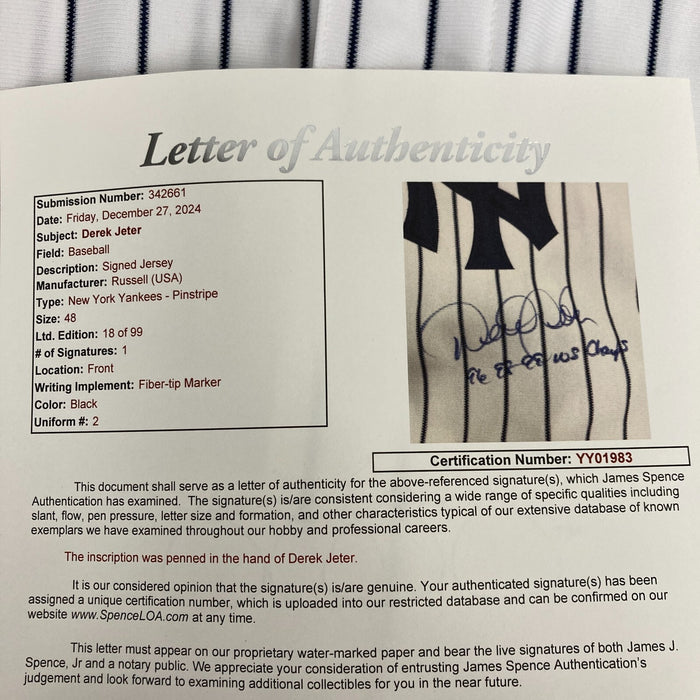 Letter of Authenticity
Submission Number: 342661
Date: Friday, December 27, 2024
Subject: Derek Jeter
Field: Baseball
Description: Signed Jersey
Manufacturer: Russell (USA)
Type: New York Yankees - Pinstripe
Size: 48
Ltd. Edition: 18 of 99
# of Signatures: 1
Location: Front
Writing Implement: Fiber-tip Marker
Color: Black
Uniform #: 2
Derek Jeter
WS Champs
Certification Number: YY01983
This document shall serve as a letter of authenticity for the above-referenced signature(s), which James Spence
Authentication has examined. The signature(s) is/are consistent considering a wide range of specific qualities including
slant, flow, pen pressure, letter size and formation, and other characteristics typical of our extensive database of known
exemplars we have examined throughout our hobby and professional careers.
The inscription was penned in the hand of Derek Jeter.
It is our considered opinion that the signature(s) is/are genuine. Your authenticated signature(s) has been
assigned a unique certification number, which is uploaded into our restricted database and can be confirmed on our
website www.SpenceLOA.com at any time.
This letter must appear on our proprietary water-marked paper and bear the live signatures of both James J.
Spence, Jr and a notary public. We appreciate your consideration of entrusting James Spence Authentication's
judgement and look forward to examining additional collectibles for you in the near future.